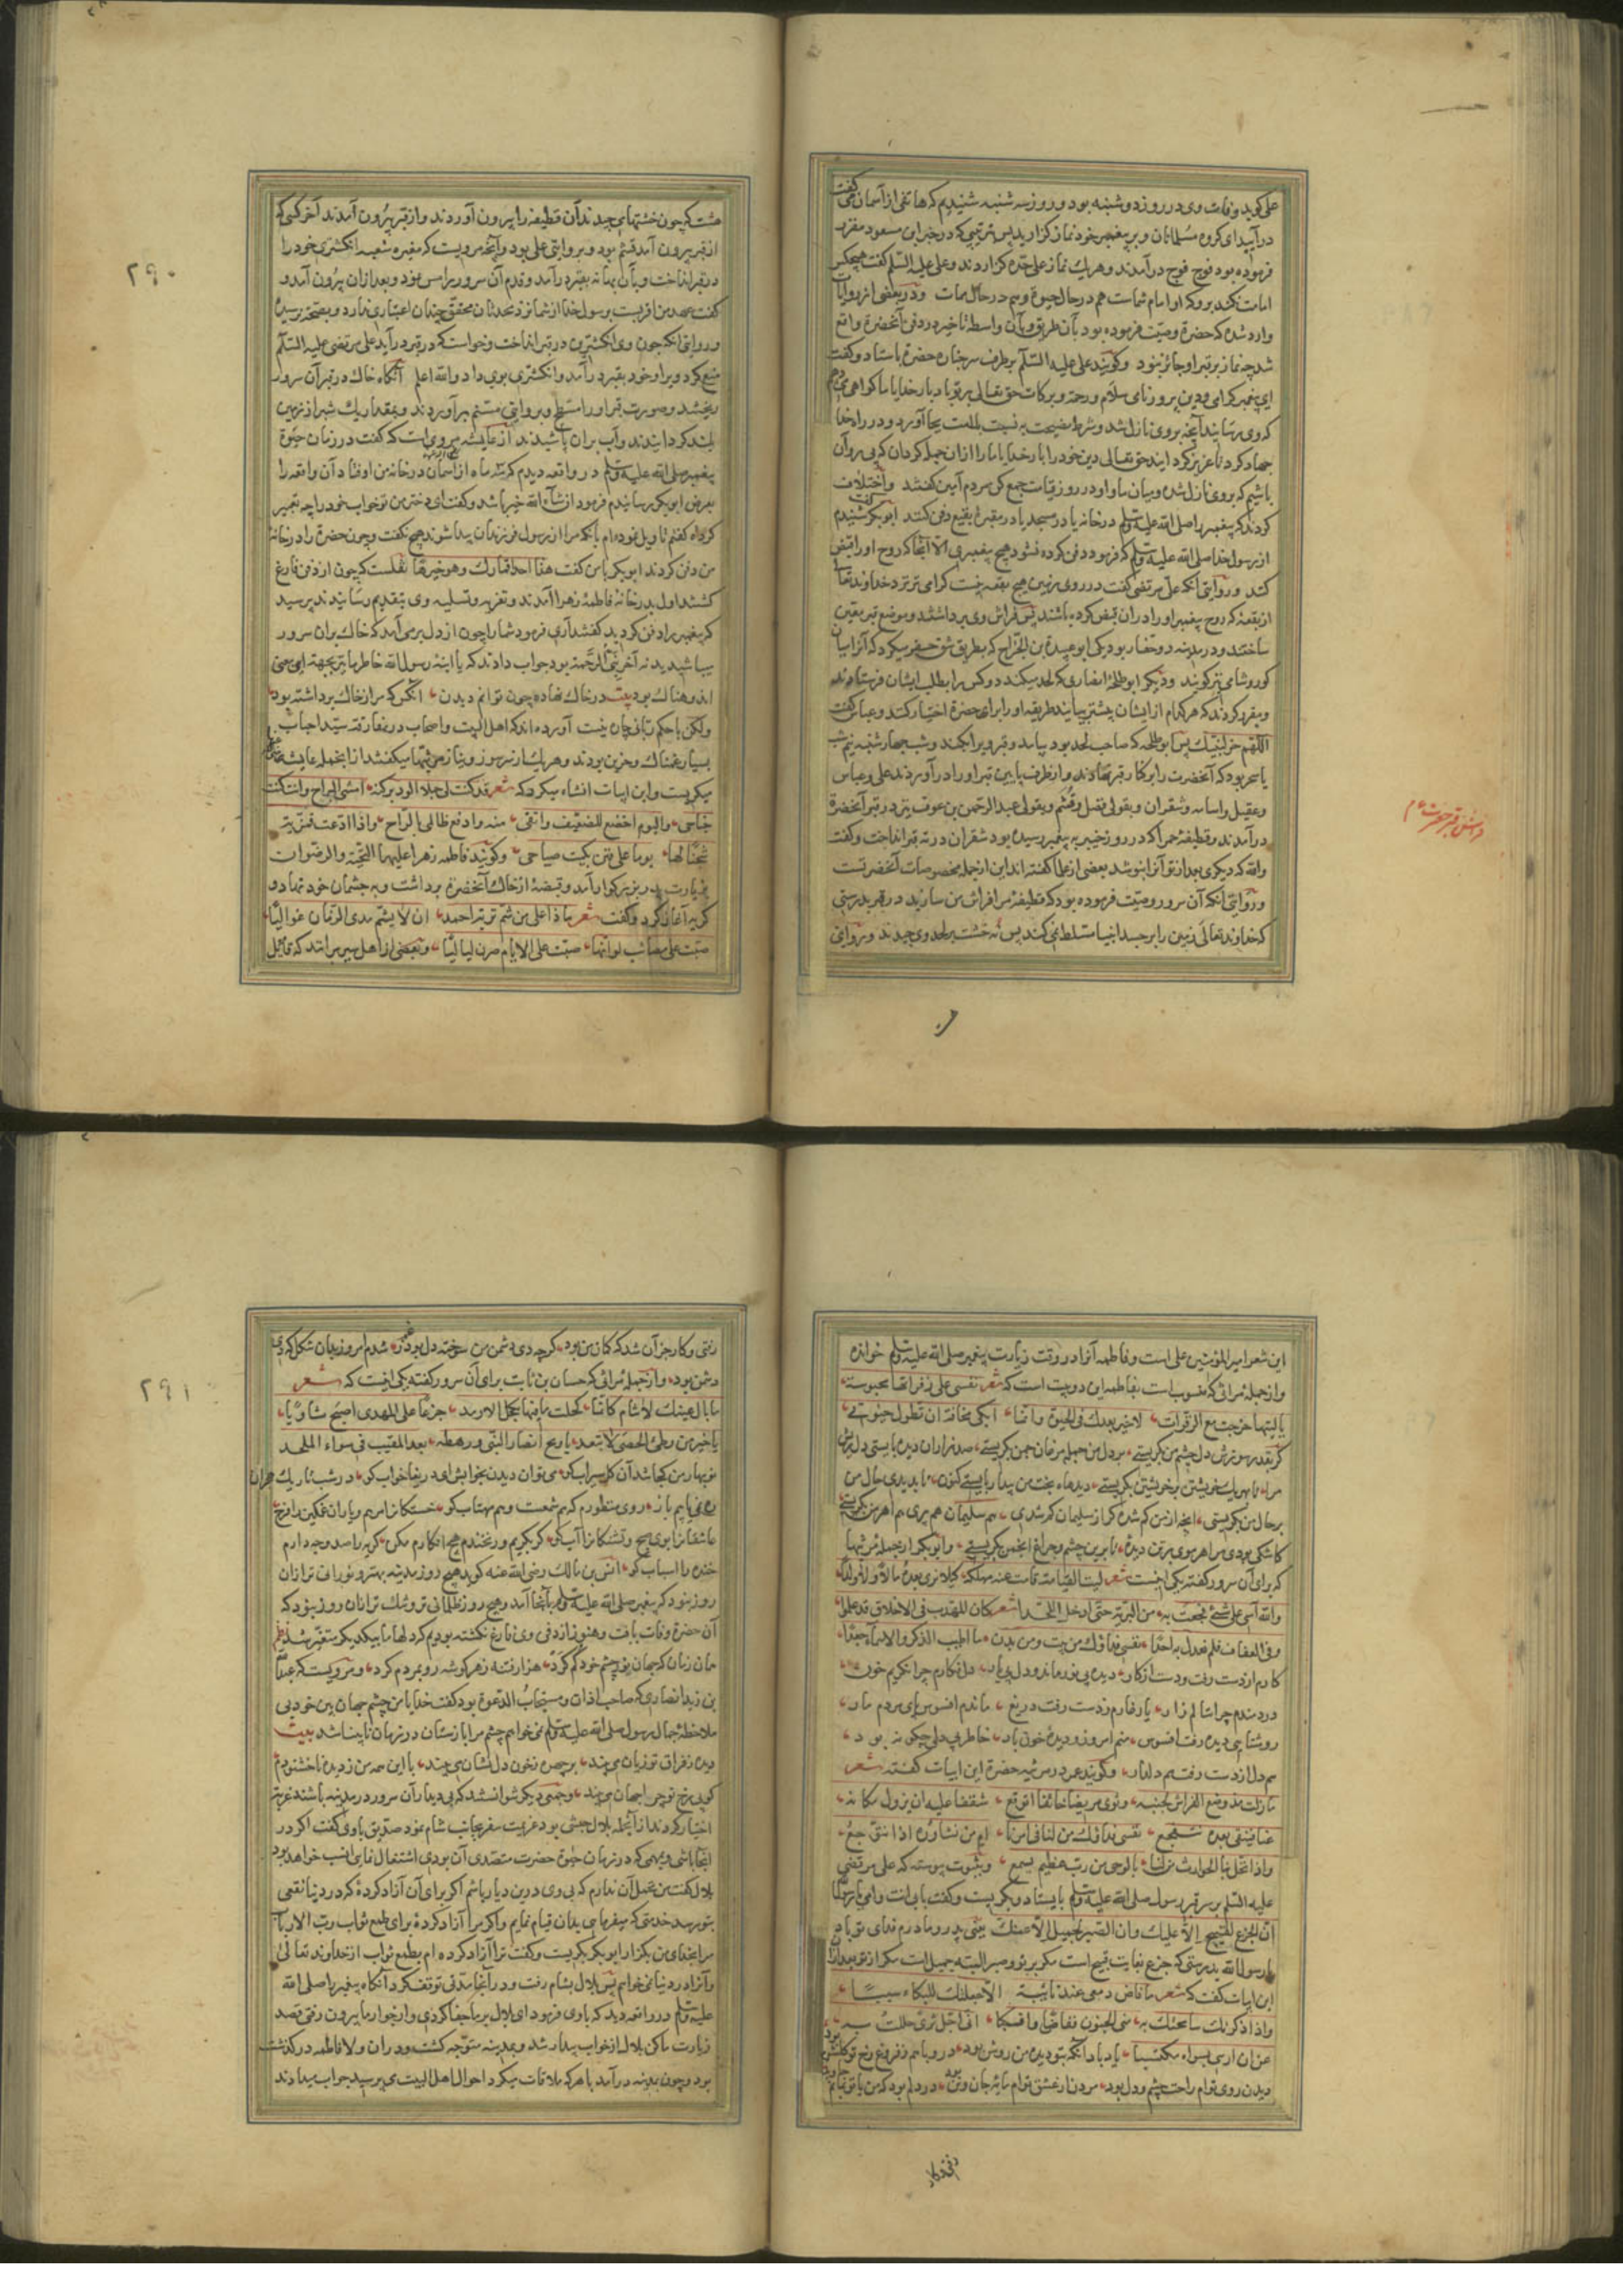 علی کوید وفات وی در روز دوشنبه بود و روز سه شنبه شنیدم که هاتفی از آسمان می کفت
در آیید ای کروه مسلمانان و بر پیغمبر خود نماز کزارید پس بترتیبی که در خبر ابن مسعود مقرر
فرموده بود فوج فوج در آمدند و هریك نماز علی حده کزاردند و علی علیه السلم کفت هیچکس
امامت نکند بروکه او امام شماست هم در حال حیوة و هم در حال ممات و در بعضی از روایات
وارد شده که حضرة وصیت فرموده بود بآن طریق وبآن واسطه تاخیر در دفن آنحضرة واقع
شد چه نماز بر قبر او جائز نبود و کویند علی علیه السلم بر طرف سر جنازه حضرة باستاد و کفت
ای پیغمبر کرامی و دین پرور نامی سلام و رحمة و برکات حق تعالی بر تو باد بار خدایا ما کواهی می دهیم
که وی رسانید آنچه بر وی نازل شد و شرط نصیحت به نسبت بامت بجا آورد و در راه خدا
جهاد کرد تا عزیز کرد ایند حق تعالی دین خود را بار خدایا ما را از ان جمله کردان که پی روان
باشیم که بر وی نازل شده و میان ما و او در روز قیامت جمع کن مردم آمین کفتند و اختلاف
کردند که پیغمبر را صلی الله علیه وسلم در خانه یا در مسجد یا در مقبرۀ بقیع دفن کنند ابو بکر کفت شنیدم
از رسول خدا صلی الله علیه وسلم که فرمود دفن کرده نشود هیچ پیغمبری الا آنجا که روح او را قبض
کنند و روایتی آنکه علی مرتضی کفت در روی زمین هیچ بقعه نیست کرامی تر نزد خداوند تعالی
از بقعۀ که روح پیغمبر او را در ان قبض کرده باشند پس فراش وی برداشتند و موضع قبر تعیین
ساختند و در مدینه دو حفار بود یکی ابو عبیدة بن الجراح که بطریق شق حفر میکرد که آنرا میان
کور و شامی نیز کویند و دیکر ابو طلحۀ انصاری که لحد میکند دو کس را بطلب ایشان فرستادند
و مقرر کردند که هر کدام از ایشان پیشتر بیایند طریقه او را برای حضرة اختیار کنند و عباس کفت
اللهم خر لنبیك پس ابو طلحه که صاحب لحد بود بیامد و قبر ویرا بکند و شب چهارشنبه نیم شب
یا سحر بود که آنحضرت را بر کنار قبر نهادند و از طرف پایین قبر او را در آوردند علی و عباس
و عقیل و اسامه و شقران و بقولی فضل و قثم و بقولی عبد الرحمن بن عوف نیز در قبر آنحضرة
در آمدند و قطیفۀ حمرا که در روز خیبر به پیغمبر رسیده بود شقران در ته قبر انداخت و کفت
والله که دیکری بعد از تو آنرا نپوشد بعضی از علما کفته اند این از جمله مخصوصات آنحضرتست
و روایتی آنکه آن سرور وصیت فرموده بود که قطیفۀ مرا فراش من سازید در قبر بدرستی
که خداوند تعالی زمین را بر جسد انبیا مسلط نمی کند پس نه خشت بر لحد وی چیدند و بروایتی
دفن قبر حضرت م
۲۹۰
هشت که چون خشتهای چیدند آن قطیفه را بیرون آوردند و از قبر بیرون آمدند آخر کسی که
از قبر بیرون آمد قثم بود و بروایتی علی بود و آنچه مرویست که مغیره شعبه انکشتری خود را
در قبر انداخت و بآن بهانه بقبر در آمد و قدم آن سرور را مس نمود و بعد از ان بیرون آمد و
کفت عهد من اقربست برسول خدا از شما نزد محدثان محقق چندان اعتباری ندارد و بصحت نرسیده
و روایتی آنکه چون وی انکشترین در قبر انداخت و خواست که در قبر در آید علی مرتضی علیه السلم
منع کرد ویرا و خود بقبر در آمد و انکشتری بوی داد والله اعلم آنکاه خاك در قبر آن سرور
ریختند و صورت قبر او را مسطح و بروایتی مسنم بر آوردند و بمقدار یك شبر از زمین
بلند کردانیدند و آب بران پاشیدند از عایشه مرویست که کفت در زمان حیوة
پیغمبر صلی الله علیه وسلم در واقعه دیدم که سه ماه از آسمان در خانه من اوفتاد آن واقعه را
بعرض ابو بکر رسانیدم فرمود ان شاء الله خیر باشد و کفت ای دختر من تو خواب خود را چه تعبیر
کردۀ کفتم تاویل نموده ام بآنکه مرا از رسول فرزندان پیدا شوند هیچ نکفت و چون حضرة را در خانۀ
من دفن کردند ابو بکر با من کفت هذا احد اقمارك و هو خیرها نقلست که چون از دفن فارغ
کشتند اول بدر خانۀ فاطمۀ زهرا آمدند و تعزیه و تسلیه وی بتقدیم رسانیدند پرسید
که پیغمبر را دفن کردید کفتند آری فرمود شما را چون از دل بر می آمد که خاك بران سرور
بپاشیدید نه آخر نبی الرحمة بود جواب دادند که یا ابنة رسول الله خاطر ما نیز بجهة این معنی
اندوهناك بود بیت در خاك نهاده چون توانم دیدن انکس که مرا ز خاك برداشته بود
ولکن با حکم ربانی چاره نیست آورده اند که اهل البیت و اصحاب در مفارقت سید احباب
بسیار غمناك و حزین بودند و هریك از سر سوز و نیاز مرثیها میکفتند از انجمله عایشه
میکریست و این ابیات انشاء میکرد که شعر قد کنت لی جبلا الوذ برکنه امشی البراح و انت کنت
جناحی والیوم اخضع للضعیف و اتقی منه و ادفع ظالمی بالراح و اذا دعت قمریة
شجنا لها یوما علی فنن بکیت صباحی و کویند فاطمه زهرا علیها التحیة والرضوان
بزیارت پدر بزرکوار آمد و قبضۀ از خاك آنحضرة برداشت و به چشمان خود نهاد و
کریه آغاز کرد و کفت شعر ماذا علی من شم تربة احمد ان لا یشم مدی الزمان غوالیا
صبت علی مصائب لو انها صبت علی الایام صرن لیالیا و بعضی از اهل سیر بر انند که قائل
این شعر امیر المؤمنین علی است و فاطمه آنرا در وقت زیارت پیغمبر صلی الله علیه وسلم خوانده
و از جمله مراثی که منسوب است بفاطمه این دو بیت است که شعر نفسی علی زفراتها محبوسة
یا لیتها خرجت مع الزفرات لا خیر بعدك فی الحیوة و انما ابکی مخافة ان تطول حیوتی
کر بقدر سوزش دل چشم من بکریستی بر دل من جمله مرغان چمن بکریستی صد هزاران دیده بایستی دل ریش
مرا تا بهر یك خویشتن بر خویشتن بکریستی دیدهاء بخت من بیدار بایستی کنون تا بدیدی حال من
بر حال من بکریستی انچه از من کم شده کر از سلیمان کم شدی بر سلیمان هم پری هم اهرمن بکریستی
کاشکی بودی مرا هر موی بر تن دیدۀ تا برین چشم و چراغ انجمن بکریستی و ابو بکر از جمله مرثیها
که برای آن سرور کفته یکی اینست شعر لیت القیامة قامت عند مهلکه کیلا نری بعده مالا و لا ولدا
والله آسی علی شئ فجعت به من البریة حتی ادخل اللحدا شعر کان المهذب فی الاخلاق قد علموا
و فی العفاف فلم نعدل به احدا نفسی فداؤك من میت و من بدن ما اطیب الذکر والاسماء جعدا
کارم از دست رفت و دست از کار دیده بی نور ماند و دل بی یار دل فکارم چرا نکریم خون
درد مندم چرا ننالم زار یار غارم ز دست رفت دریغ ماندم افسوس پای بر دم مار
روشنایی دیده رفت افسوس منم امروز و دیدۀ خون بار خاطر بی دلی چکونه بود
هم دل از دست رفت هم دلدار و کویند عمر در مرثیۀ حضرة این ابیات کفته شعر
ما زلت مذ وضع الفراش لجنبه و ثوی مریضا خائفا اتوقع شفقا علیه ان یزول مکانه
عنا فنبقی بعده نتفجع نفسی فداؤك من لنا فی امرنا ام من نشاوره اذا نتوجع
و اذا تحل بنا الحوادث من لنا بالوحی من رب عظیم یسمع و بثبوت پیوسته که علی مرتضی
علیه السلم بر سر قبر رسول صلی الله علیه وسلم بایستاد و بکریست و کفت بابی انت و امی یا رسول الله
ان الجزع لقبیح الا علیك و ان الصبر لجمیل الا عنك یعنی پدر و مادرم فدای تو باد
یا رسول الله بدرستی که جزع بغایت قبیح است مکر بر تو و صبر البته جمیل است مکر از تو بعد از ان
این ابیات کفت که شعر ما فاض دمعی عند نائبة الا جعلتك للبکاء سببا
و اذا ذکرتك سامحتك به منی الجفون ففاض و انسکبا انی اجل ثری حللت به
عن ان اری بسواه مکتئبا یاد باد آنکه بتو دیده من روشن بود
دیدن روی توام راحت چشم و دل بود
رفتی و کار
۲۹۱
رفتی و کار جز آن شد که کمان من بود کرچه دی دشمن من سوخته دل بود شدم امروز بدان شکل که دی
دشمن بود و از جمله مراثی که حسان بن ثابت برای آن سرور کفته یکی اینست که شعر
ما بال عینك لا تنام کانما کحلت مآقیها بکحل الارمد جزعا علی المهدی اصبح ثاویا
یا خیر من وطئ الحصی لا تبعد یا ویح انصار النبی و رهطه بعد المغیب فی سواء الملحد
نوبهار من کجا شد آن کل سیراب کو می توان دیدن بخوابش ای دریغا خواب کو در شب تاریك هجران
ره نمی یابم باز روی منظورم که هم شمعست و هم مهتاب کو خستکانرا مرهم و یاران غمکین را فرح
عاشقانرا بوی هیچ و تشنکانرا آب کو کر بکریم ور بخندم هیچ انکارم مکن کریه را صد وجه دارم
خنده را اسباب کو انس بن مالك رضی الله عنه کوید هیچ روز مدینه بهتر و نورانی تر از ان
روز نبود که پیغمبر صلی الله علیه وسلم بآنجا آمد و هیچ روز ظلمانی تر و تنك تر از ان روز نبود که
آن حضرة وفات یافت و هنوز از دفن وی فارغ نکشته بودیم که دلها ما بیکدیکر متغیر شد
همان زمان که جهان نور چشم خود کم کرد هزار فتنه ز هر کوشه رو بمردم کرد و مرویست که عبد الله
بن زید انصاری که صاحب اذان و مستجاب الدعوة بود کفت خدایا من چشم جهان بین خود بی
ملاحظۀ جمال رسول صلی الله علیه وسلم نمی خواهم چشم مرا باز ستان در زمان نابینا شد بیت
دیده ز فراق تو زیان می بیند بر چهره ز خون دل نشان می بیند با این همه من ز دیده ناخشنودم
کو بی رخ تو چرا جهان می بیند و جمعی دیکر نتوانستند که بی دیدار آن سرور در مدینه باشند غربت
اختیار کردند از آنجمله بلال حبشی بود عزیمت سفر بجانب شام نمود صدیق با وی کفت اکر در
اینجا باشی و بهمی که در زمان حیوة حضرت متصدی آن بودی اشتغال نمایی انسب خواهد بود
بلال کفت من تحمل آن ندارم که بی وی در دین دیار باشم اکر برای آن آزاد کردۀ که در دنیا نفعی
بتو رسد خدمتی که میفرمایی بدان قیام نمایم و اکر مرا آزاد کردۀ برای طمع ثواب رب الارباب
مرا بخدای من بکزار ابو بکر بکریست و کفت ترا آزاد کرده ام بطمع ثواب از خداوند تعالی
و آنرا در دنیا نمی خواهم پس بلال بشام رفت و در آنجا مدتی توقف کرد آنکاه پیغمبر را صلی الله
علیه وسلم در واقعه دید که با وی فرمود ای بلال بر ما جفا کردی و از جوار ما بیرون رفتی قصد
زیارت ما کن بلال از خواب بیدار شد و بمدینه متوجه کشت و در ان ولا فاطمه در کذشته
بود و چون بمدینه در آمد با هر که ملاقات میکرد احوال اهل البیت می پرسید جواب میدادند